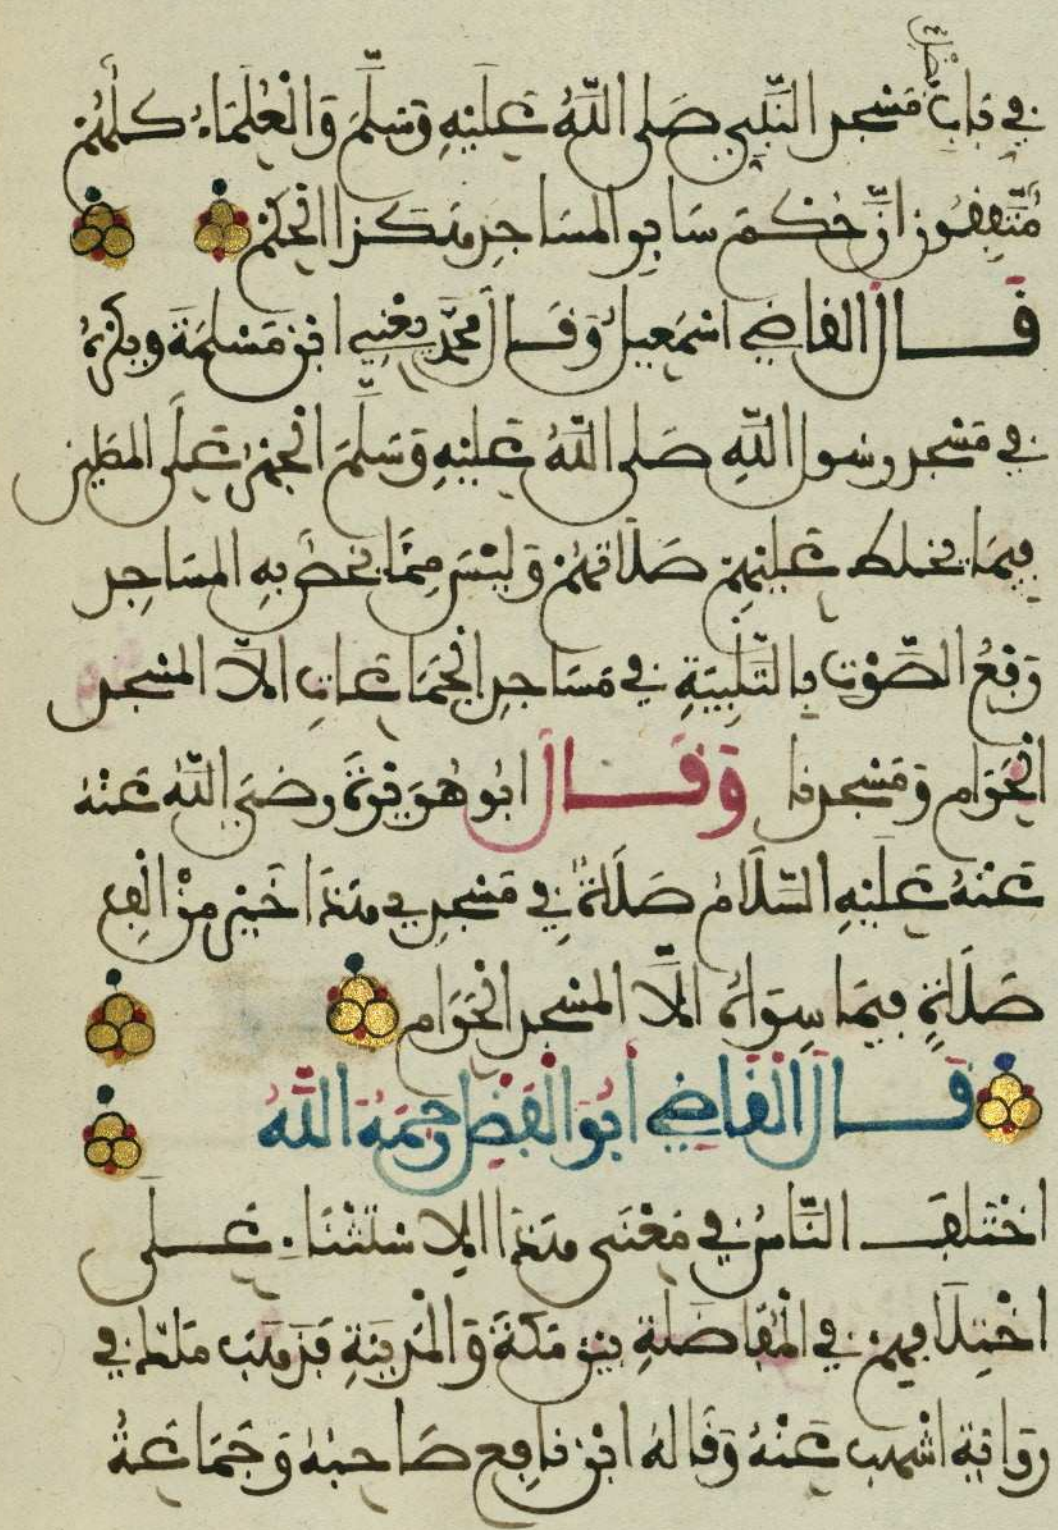 فضل
في باب مسجد النبي صلى الله عليه وسلم والعلماء كلهم
متفقون أن حكم سائر المساجد هكذا الحكم
قال القاضي اسمعيل وقال محمد يعني ابن مسلمة ويكره
في مسجد رسول الله صلى الله عليه وسلم الجهر على المصلين
فيما يخلط عليهم صلاتهم وليس مما يخص به المساجد
رفع الصوت بالتلبية في مساجد الجماعات الا المسجد
الحرام ومسجدنا وقال ابو هريرة رضي الله عنه
عنه عليه السلام صلاة في مسجدي هذا خير من الف
صلاة فيما سواه الا المسجد الحرام
قال القاضي أبو الفضل رحمه الله
اختلف الناس في معنى هذا الاستثناء على
اختلافهم في المفاضلة بين مكة والمدينة فذهب ملك في
رواية اشهب عنه وقاله ابن نافع صاحبه وجماعة